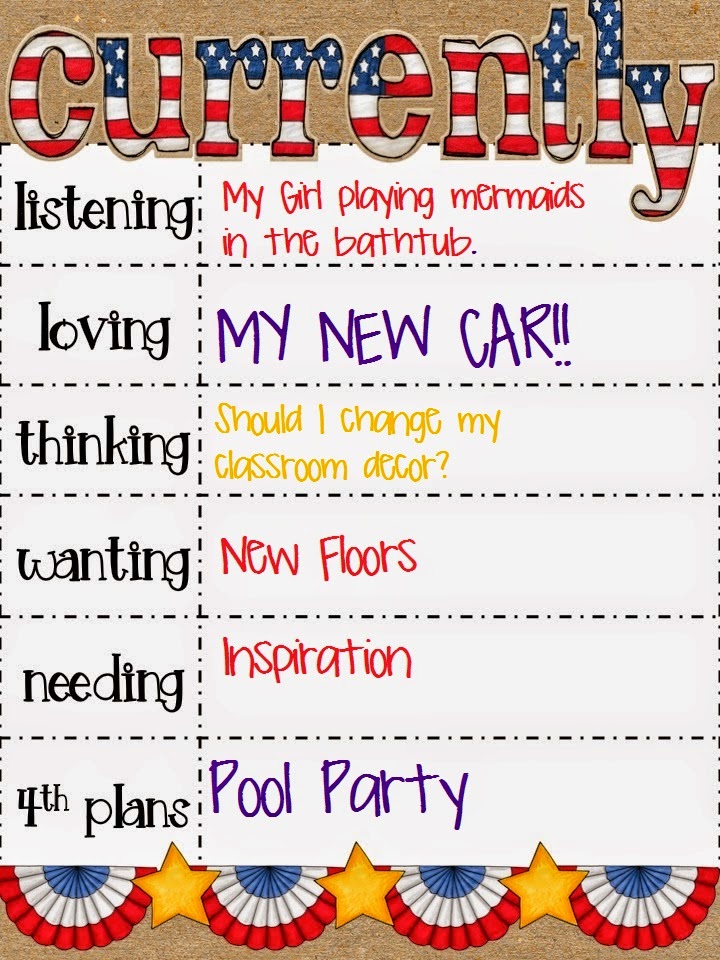 currently
listening
My Girl playing mermaids
in the bathtub.
loving
MY NEW CAR!!
thinking
Should I change my
classroom decor?
wanting
New Floors
needing
Inspiration
4th plans
Pool Party